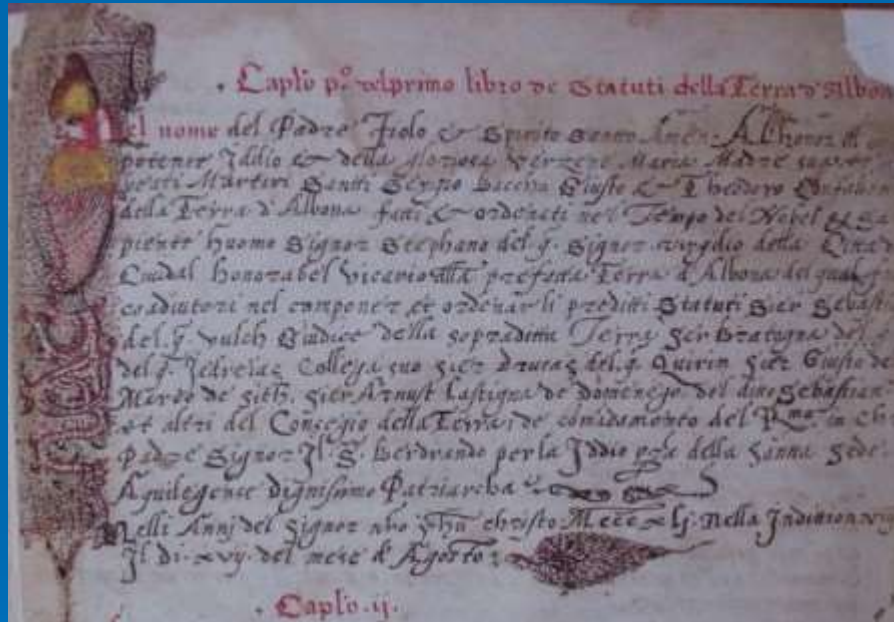 Caplo pº del primo libro de Statuti della Terra d'Albona
El nome del Padre Fiolo & Spirito Santo Amen. A l'honor di
potente Iddio & della gloriosa Verzene Maria Madre sua
Martiri Santi Sergio Baccho Giusto & Theodoro
della Terra d'Albona fatti & ordenati nel Tempo del Nobel & Sa
piente huomo Signor Stephano del q. Signor Virgilio della
Cividal honorabel Vicario prefatta Terra d'Albona del qual
coadiutori nel componer et ordenar li preditti Statuti Sier Sebast
del q. vulch Giudice della sopraditta Terra Ser Bratogna del
del q. Jedreias Collega suo Sier Drucas del q. Quirin Sier Giusto de
Mardo de Sier Arnust Lastigna de Domenego del ditto Sebastian
et altri del Consegio della Terra, de comandamento del R.mo in Ch
Padre Signor Il S. Bertrando per la Iddio gra della Santa Sede
Aquilegense dignissimo Patriarcha
Nelli Annj del Signor nro Jhu christo Mccc xlj. Nella Indition
Il di. xvij. del mese d'Agosto
Caplo .ij.